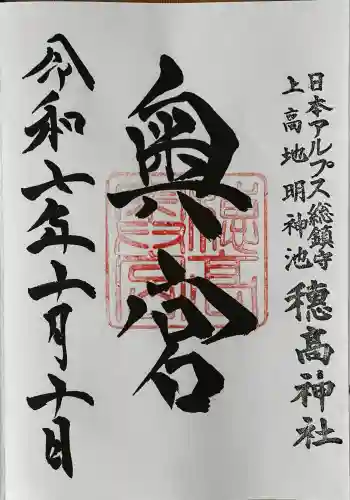 日本アルプス総鎮守
上高地明神池
穂髙神社
奥宮
令和七年十月十日